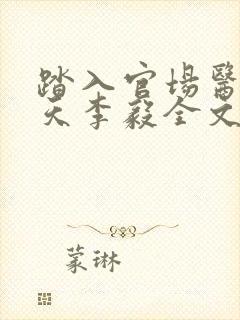 踏入官場醫
天李毅全文
蒙琳